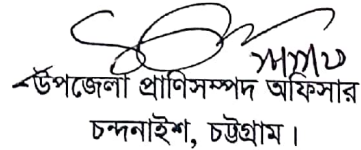 উপজেলা প্রাণিসম্পদ অফিসার
চন্দনাইশ, চট্টগ্রাম।